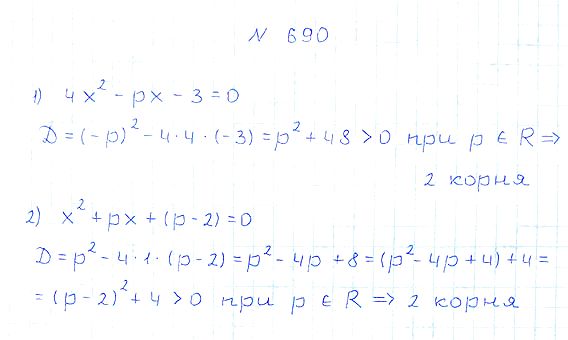 N 690
1) 4x² - px - 3 = 0
D = (-p)² - 4·4·(-3) = p² + 48 > 0 при p ∈ R ⇒
2 корня
2) x² + px + (p-2) = 0
D = p² - 4·1·(p-2) = p² - 4p + 8 = (p² - 4p + 4) + 4 =
= (p-2)² + 4 > 0 при p ∈ R ⇒ 2 корня